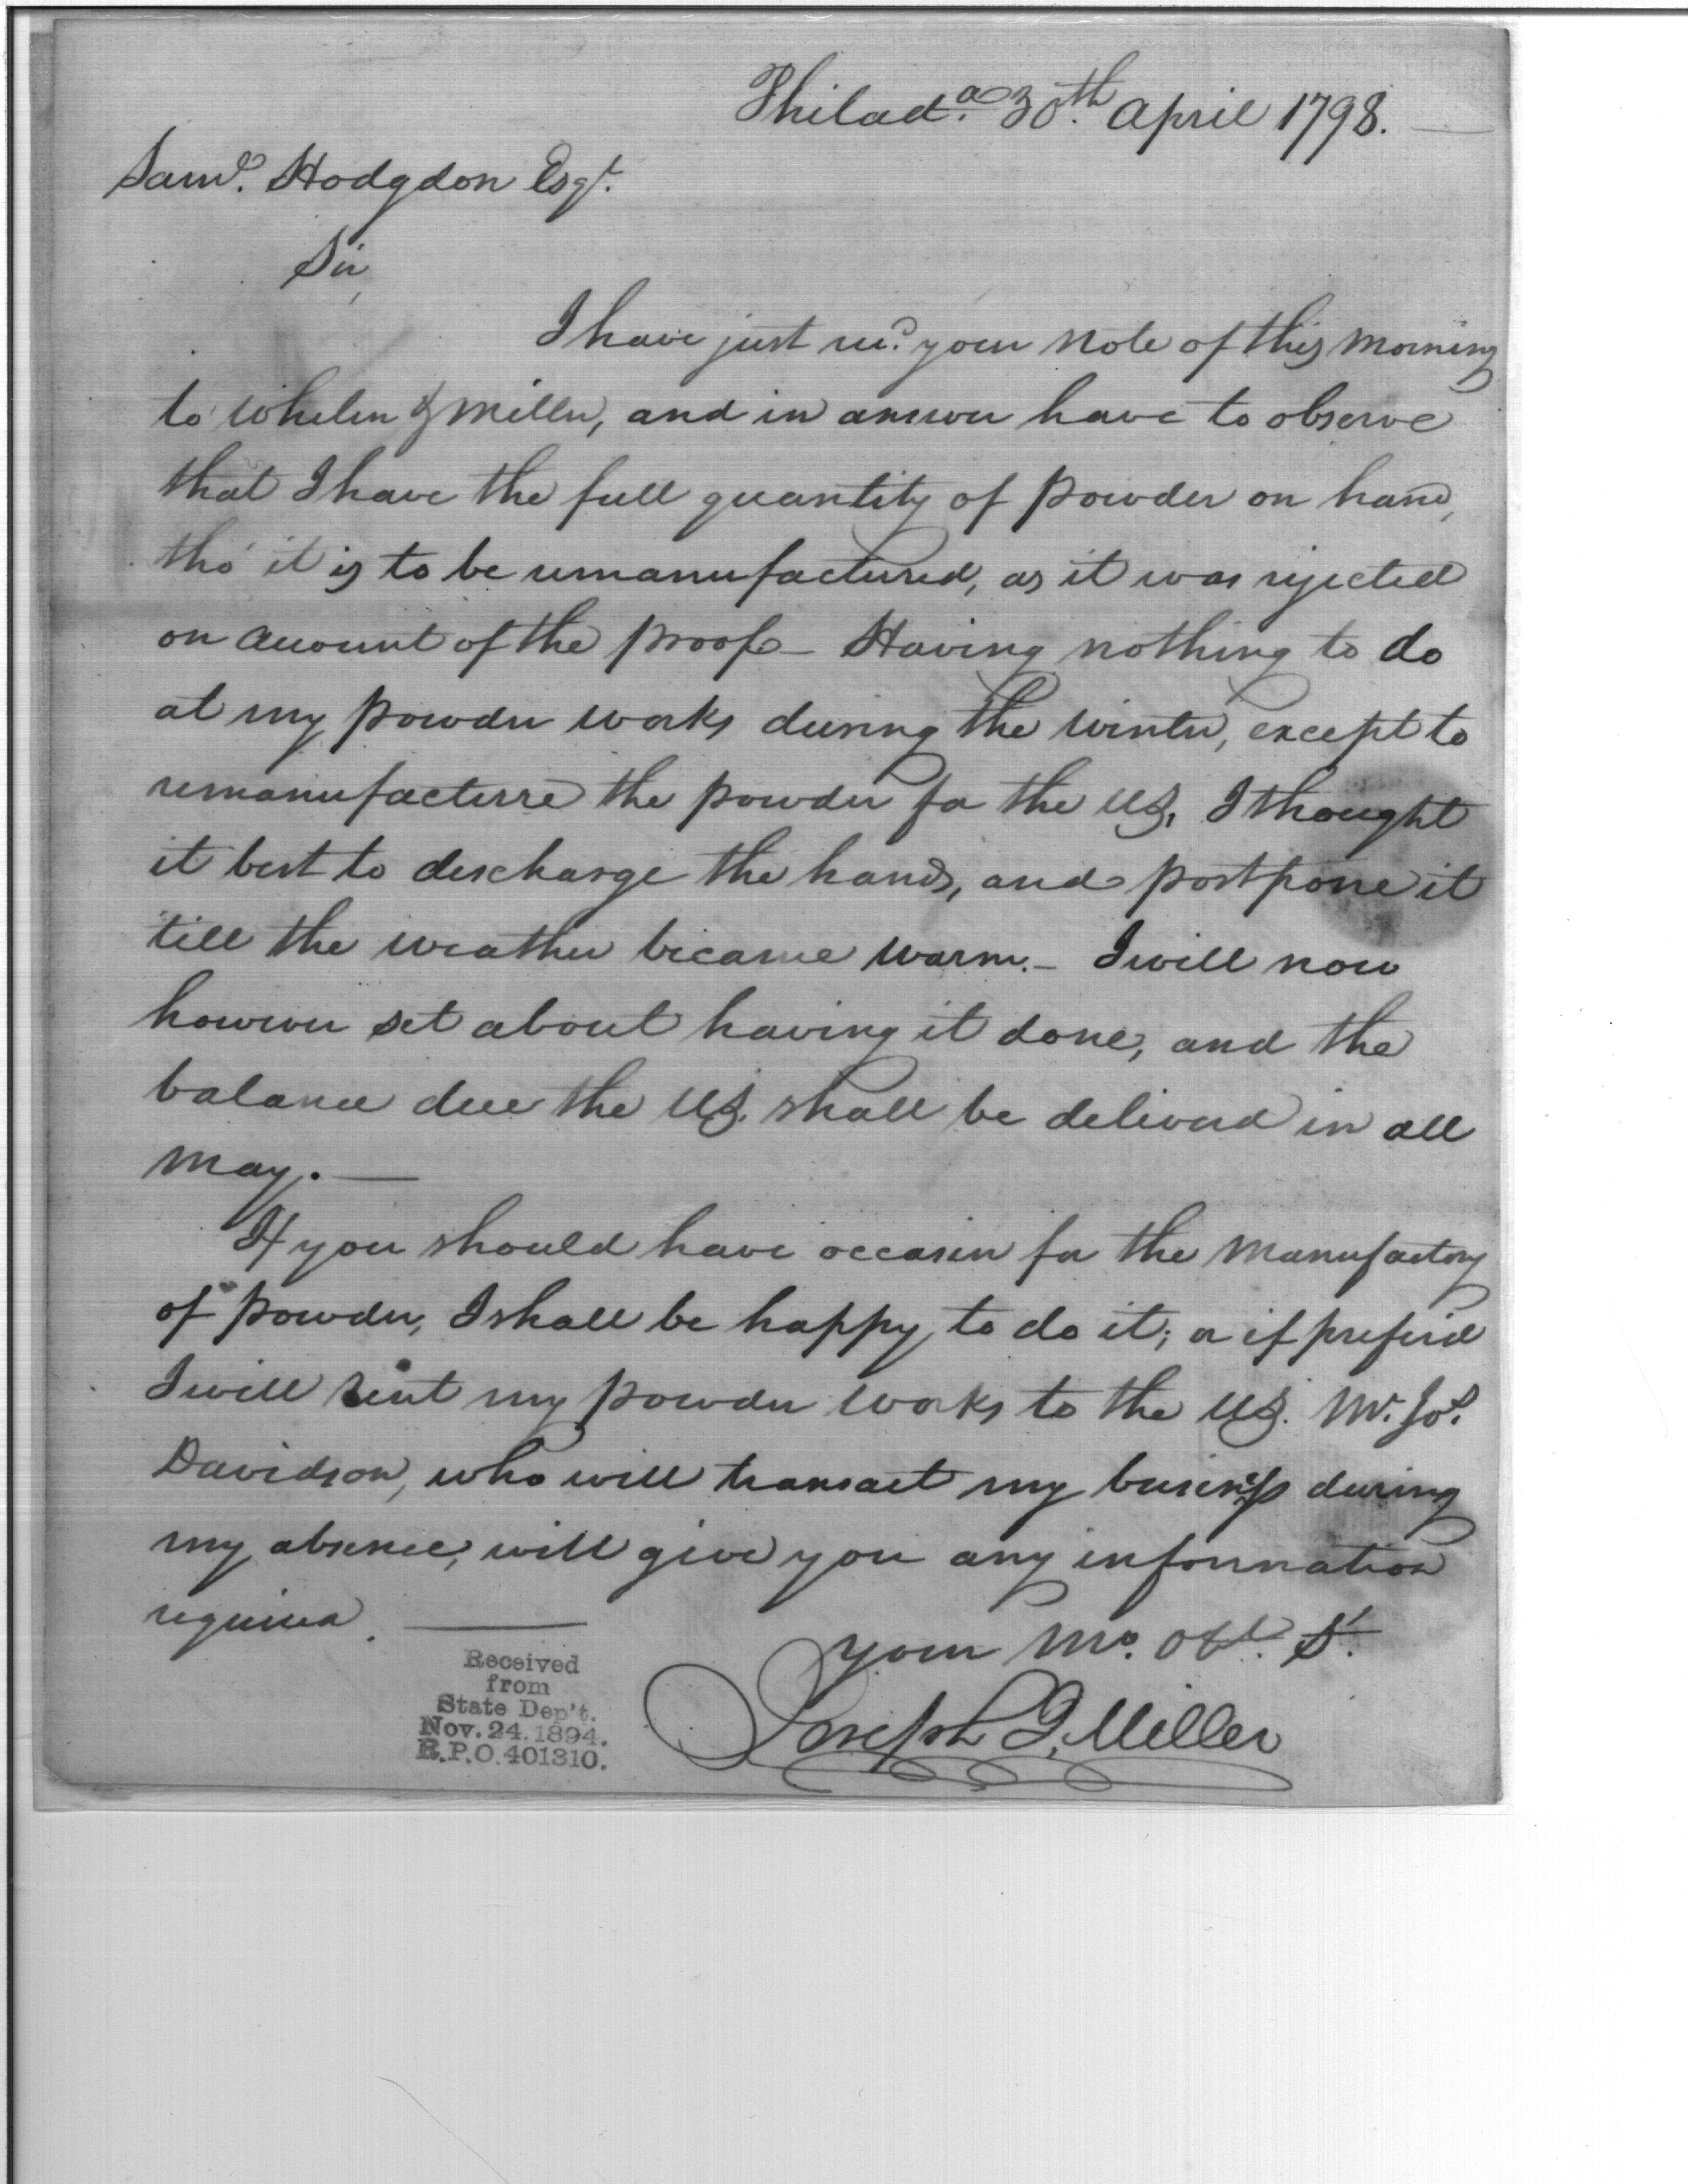 Philada. 30th. April 1798.
Saml. Hodgdon Esqr.
Sir,
I have just recd. your note of this morning
to Whelen & Miller, and in answer have to observe
that I have the full quantity of powder on hand,
tho' it is to be remanufactured, as it was rejected
on account of the proof – Having nothing to do
at my powder works during the winter, except to
remanufacture the powder for the US, I thought
it best to discharge the hands, and postpone it
till the weather became warm. – I will now
however set about having it done, and the
balance due the US. shall be delivered in all
May. —
If you should have occasion for the manufactory
of powder, I shall be happy to do it; or if prefered
I will rent my powder works to the US. Mr. Jos.
Davidson, who will transact my business during
my absence, will give you any information
required. —
your Mo. Obt. St.
Joseph J. Miller
Received
from
State Dep't.
Nov. 24. 1894.
R.P.O. 401310.